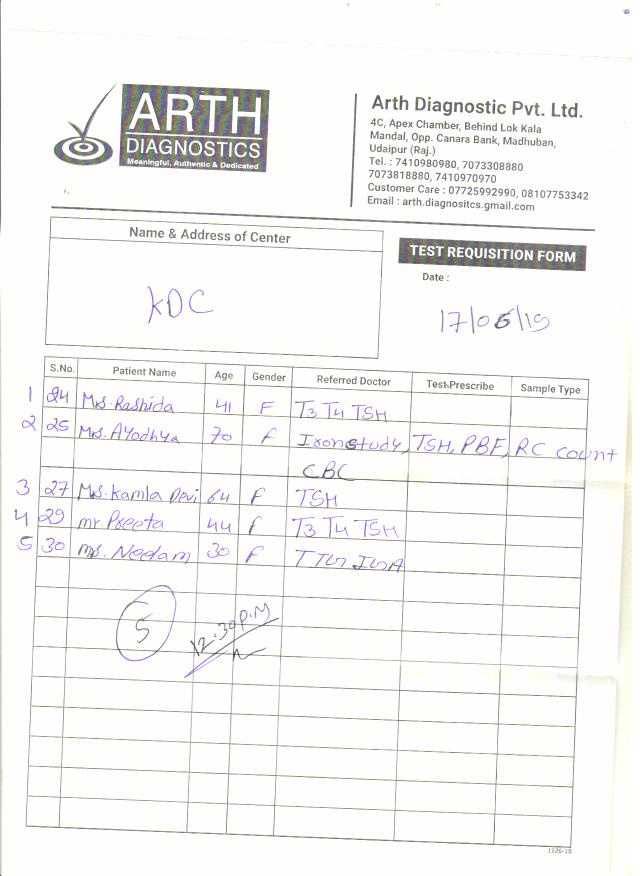 ARTH
DIAGNOSTICS
Meaningful, Authentic & Dedicated
Arth Diagnostic Pvt. Ltd.
4C, Apex Chamber, Behind Lok Kala
Mandal, Opp. Canara Bank, Madhuban,
Udaipur (Raj.)
Tel. : 7410980980, 7073308880
7073818880, 7410970970
Customer Care : 07725992990, 08107753342
Email : arth.diagnositcs.gmail.com
Name & Address of Center
KDC
TEST REQUISITION FORM
Date :
17/06/19
S.No. Patient Name Age Gender Referred Doctor Test Prescribe Sample Type
1 24 Mrs. Rashida 41 F T3 T4 TSH
2 25 Mrs. Ayodhya 70 F Iron study, TSH, PBF, RC count
CBC
3 27 Mrs. Kamla Devi 64 F TSH
4 29 mr. Preeta 44 F T3 T4 TSH
5 30 ms. Neelam 30 F TTG IGA
5
12:30 P.M
1526-18